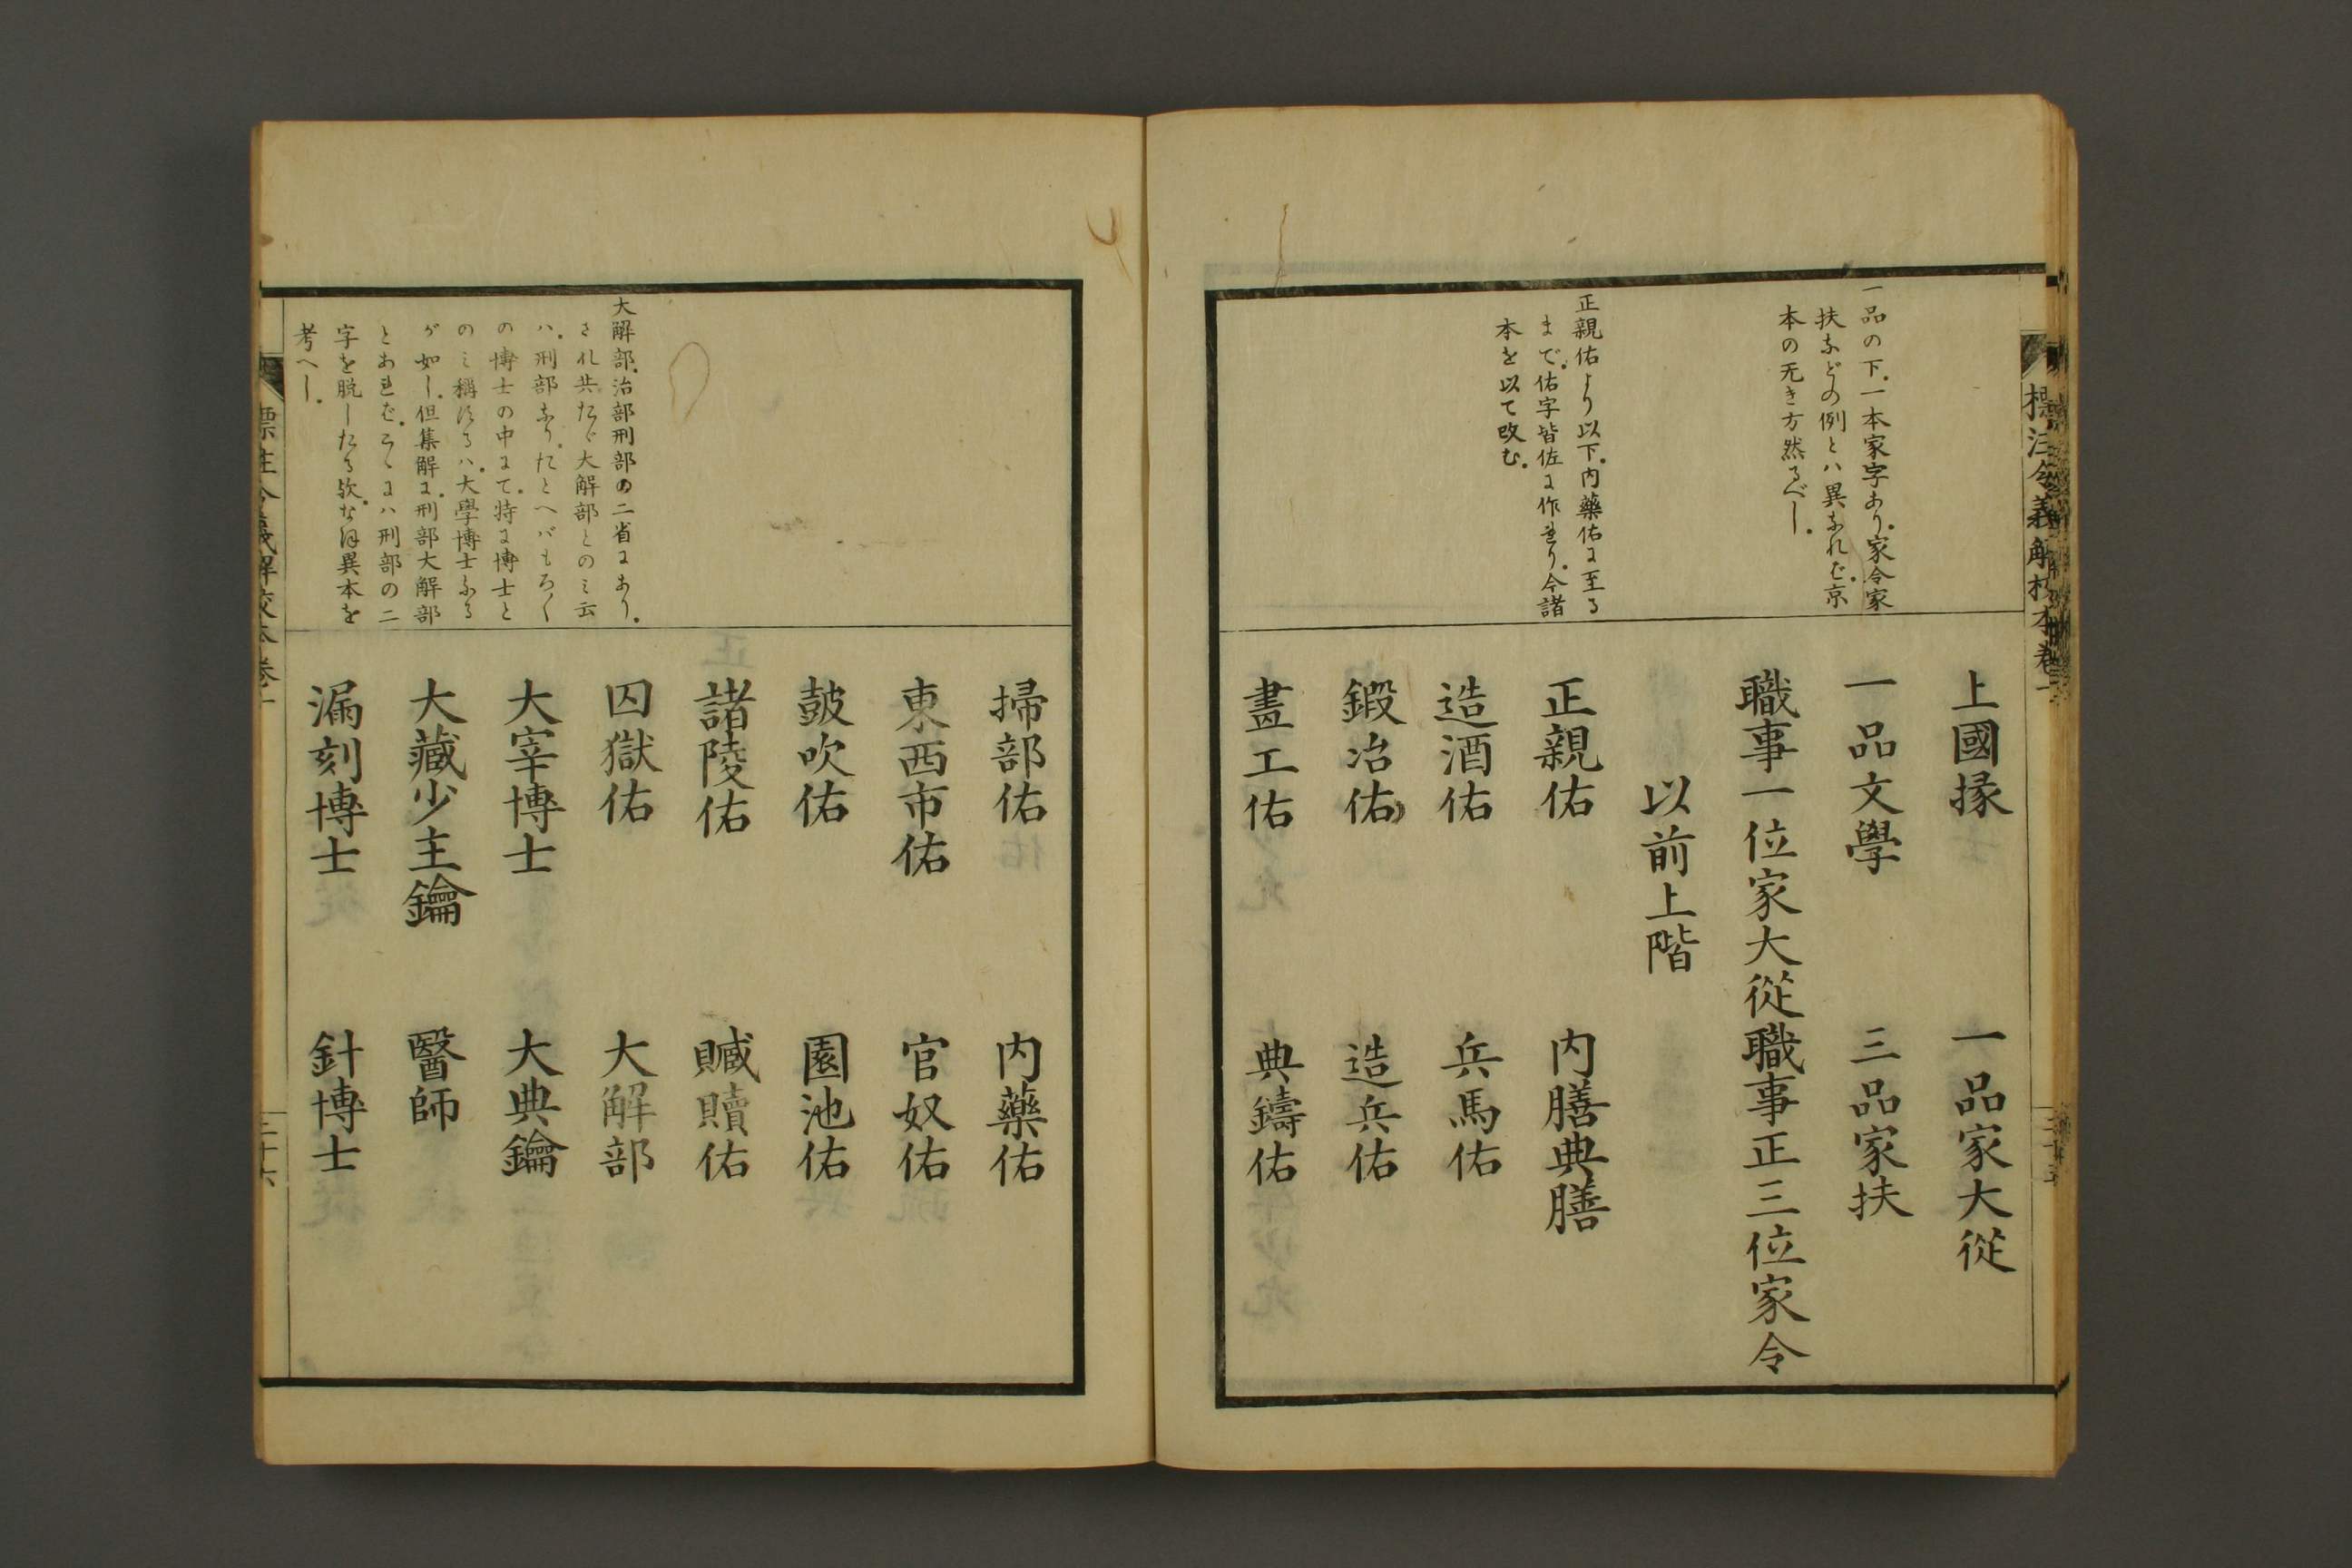 標注令義解校本卷一
一品の下。一本家字あり。家令家
扶などの例とハ異なれど。京
本の无き方然るべし。
正親佑より以下。内藥佑に至る
まで。佑字皆佐に作れり。今諸
本を以て改む。
上國掾 一品家大從
一品文學 三品家扶
職事一位家大從職事正三位家令
以前上階
正親佑 内膳典膳
造酒佑 兵馬佑
鍛冶佑 造兵佑
畫工佑 典鑄佑
大解部。治部刑部の二省にあり。
され共たゞ大解部とのミ云
ハ。刑部なり。たとへバもろ〱
の博士の中にて。特に博士と
のミ稱するハ。大學博士なる
が如し。但集解に。刑部大解部
とあれど。こゝにハ刑部の二
字を脱したる歟。なほ異本を
考へし。
掃部佑 内藥佑
東西市佑 官奴佑
鼓吹佑 園池佑
諸陵佑 贓贖佑
囚獄佑 大解部
大宰博士 大典鑰
大藏少主鑰 醫師
漏刻博士 針博士
標注令義解校本卷一
三十六